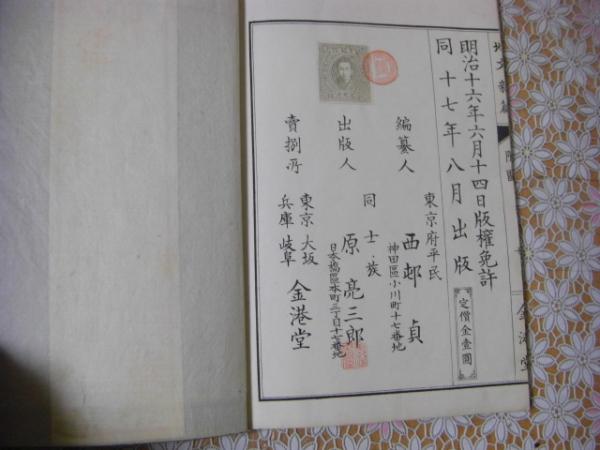 地文新編
附図
金港堂
明治十六年六月十四日版權免許
同十七年八月出版
定價金壹圓
編纂人
東京府平民
西邨貞
神田區小川町十七番地
出版人
同士族
原亮三郎
日本橋區本町三丁目十七番地
賣捌所
東京大坂
兵庫岐阜
金港堂